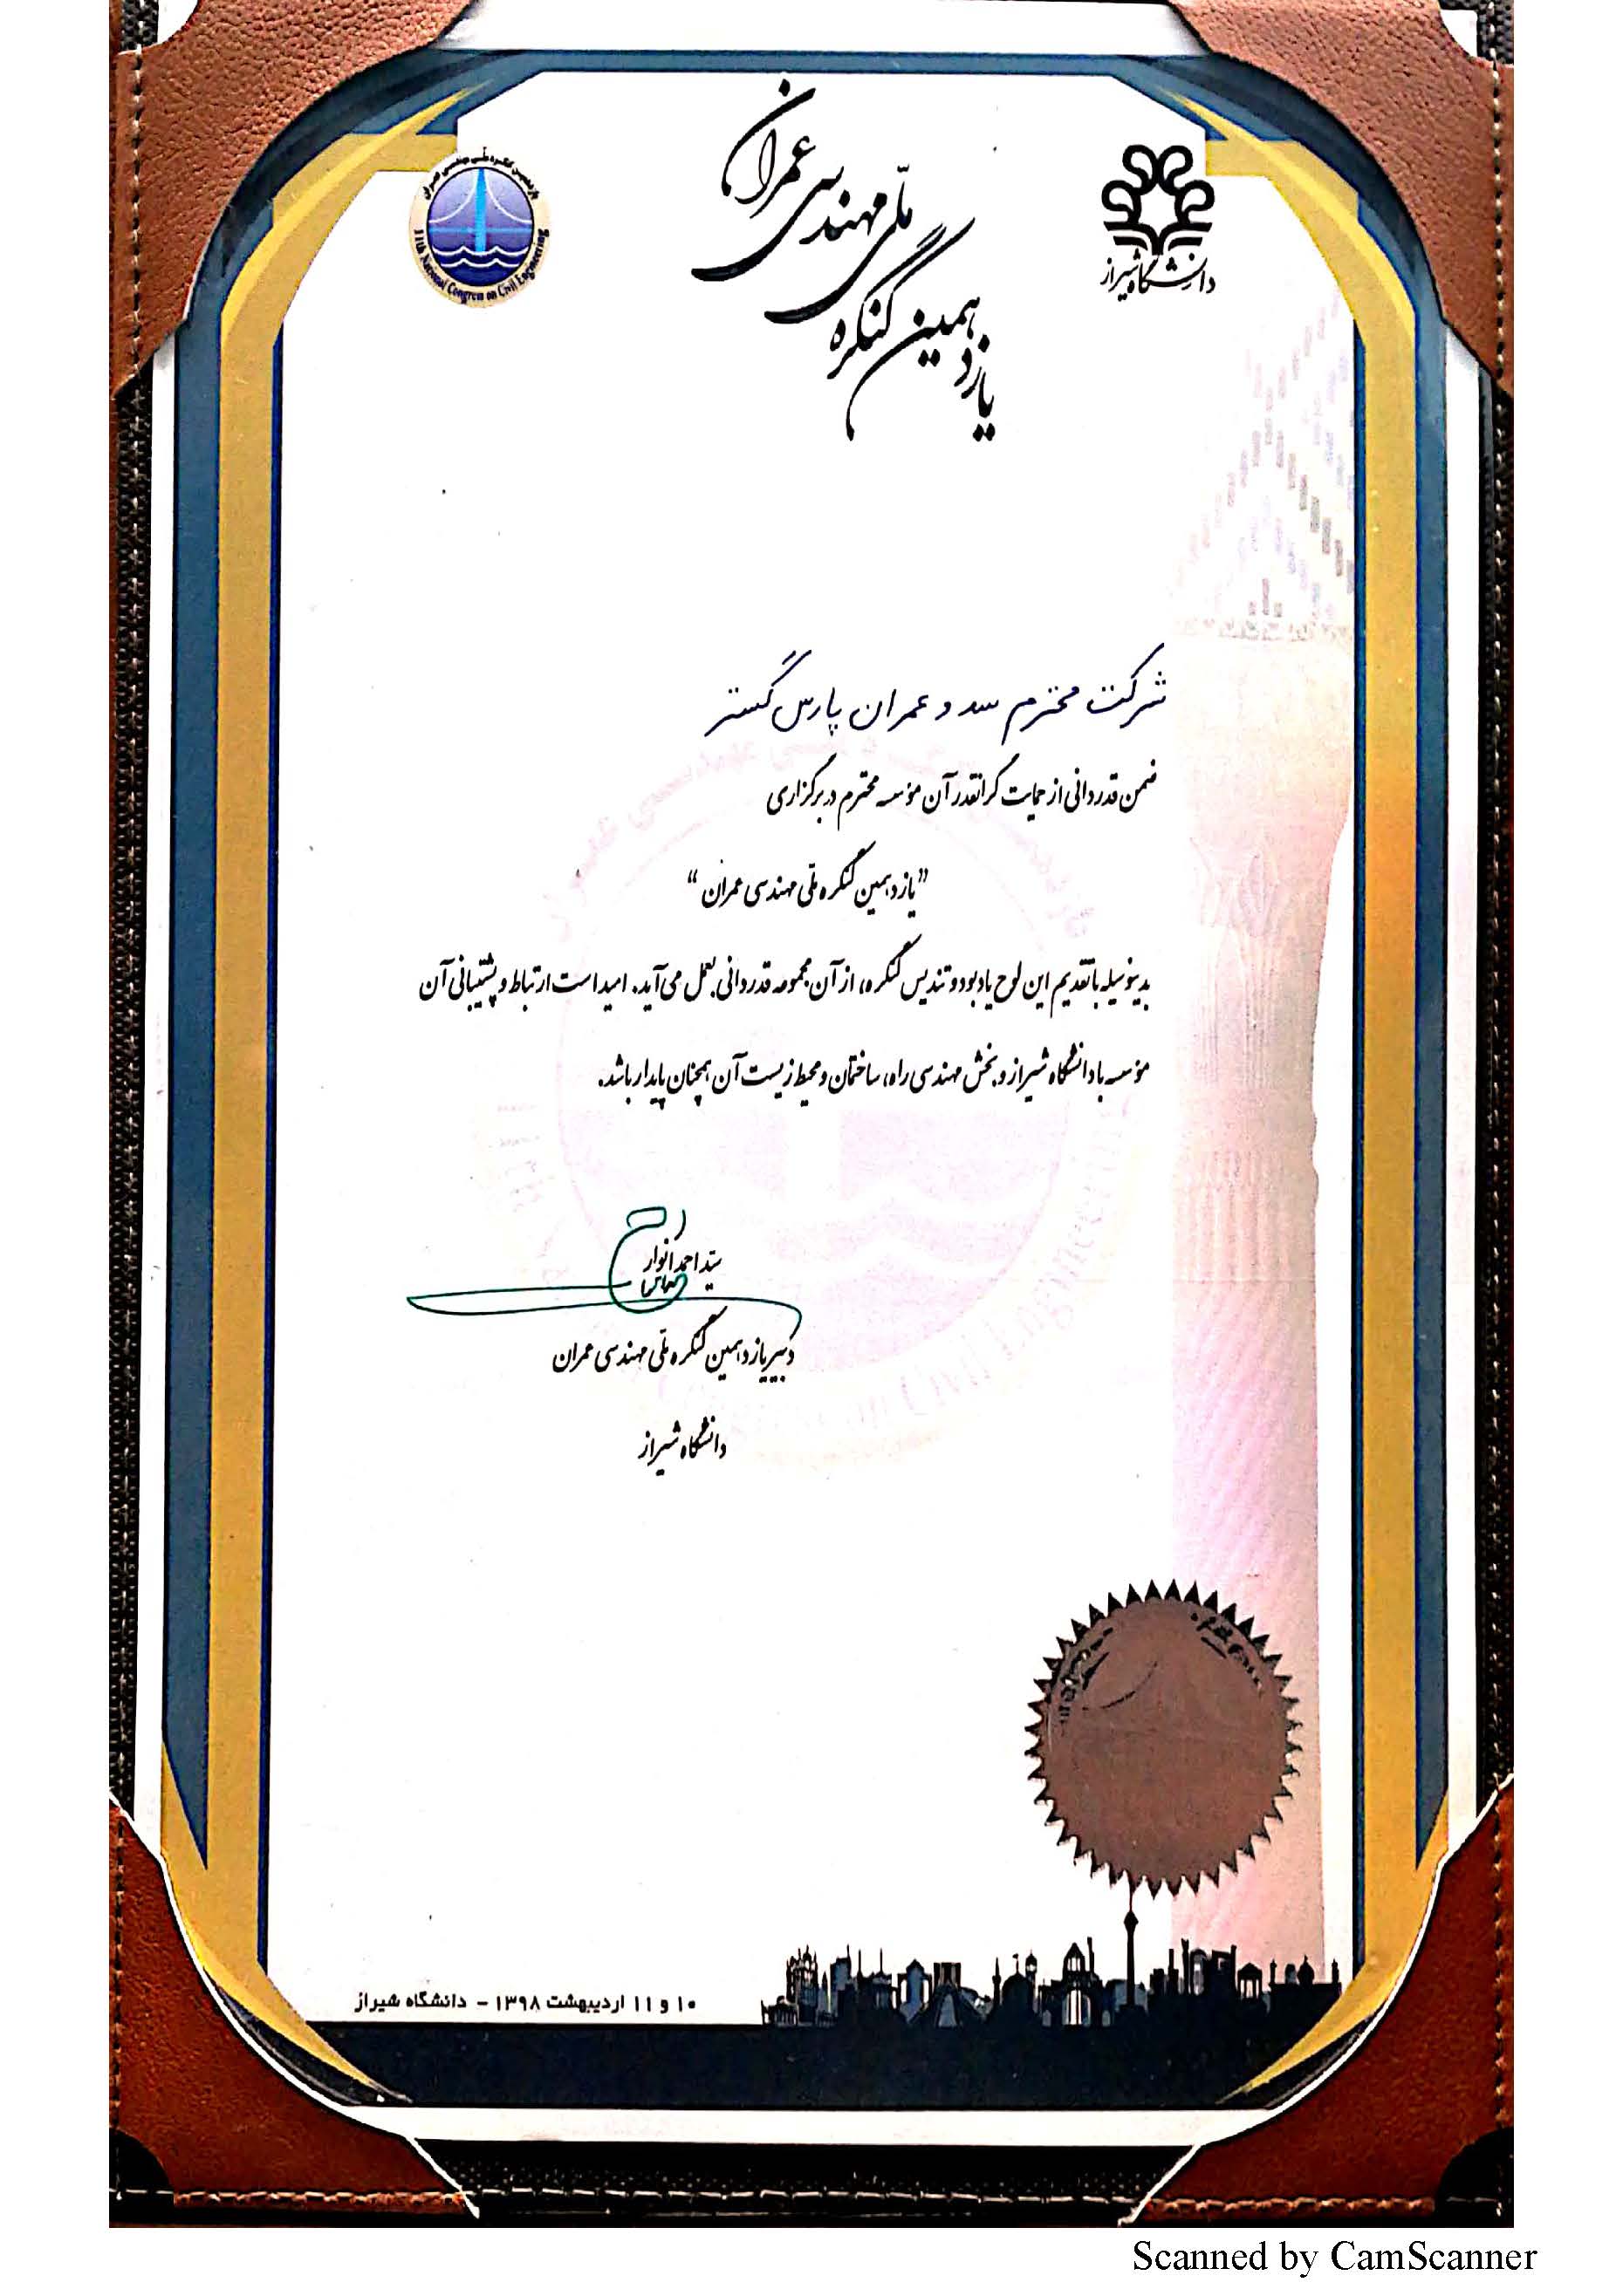 یازدهمین کنگره ملّی مهندسی عمران
دانشگاه شیراز
یازدهمین کنگره ملّی مهندسی عمران
11th National Congress on Civil Engineering
شرکت محترم سد و عمران پارس گستر
ضمن قدردانی از حمایت گرانقدر آن مؤسسه محترم در برگزاری
”یازدهمین کنگره ملّی مهندسی عمران“
بدینوسیله با تقدیم این لوح یادبود و تندیس کنگره، از آن مجموعه قدردانی بعمل می‌آید. امید است ارتباط و پشتیبانی آن
مؤسسه با دانشگاه شیراز و بخش مهندسی راه، ساختمان و محیط زیست آن همچنان پایدار باشد.
سیّد احمد انوار
دبیر یازدهمین کنگره ملّی مهندسی عمران
دانشگاه شیراز
۱۰ و ۱۱ اردیبهشت ۱۳۹۸ - دانشگاه شیراز
Scanned by CamScanner